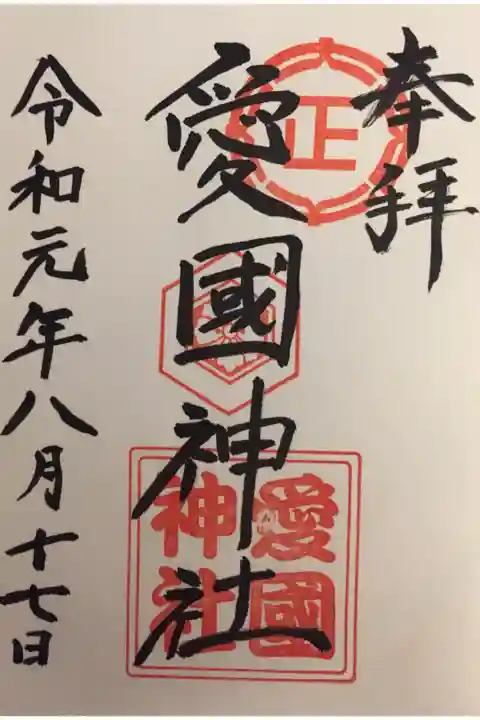 奉拝
正
愛國神社
愛國
神社
令和元年八月十七日